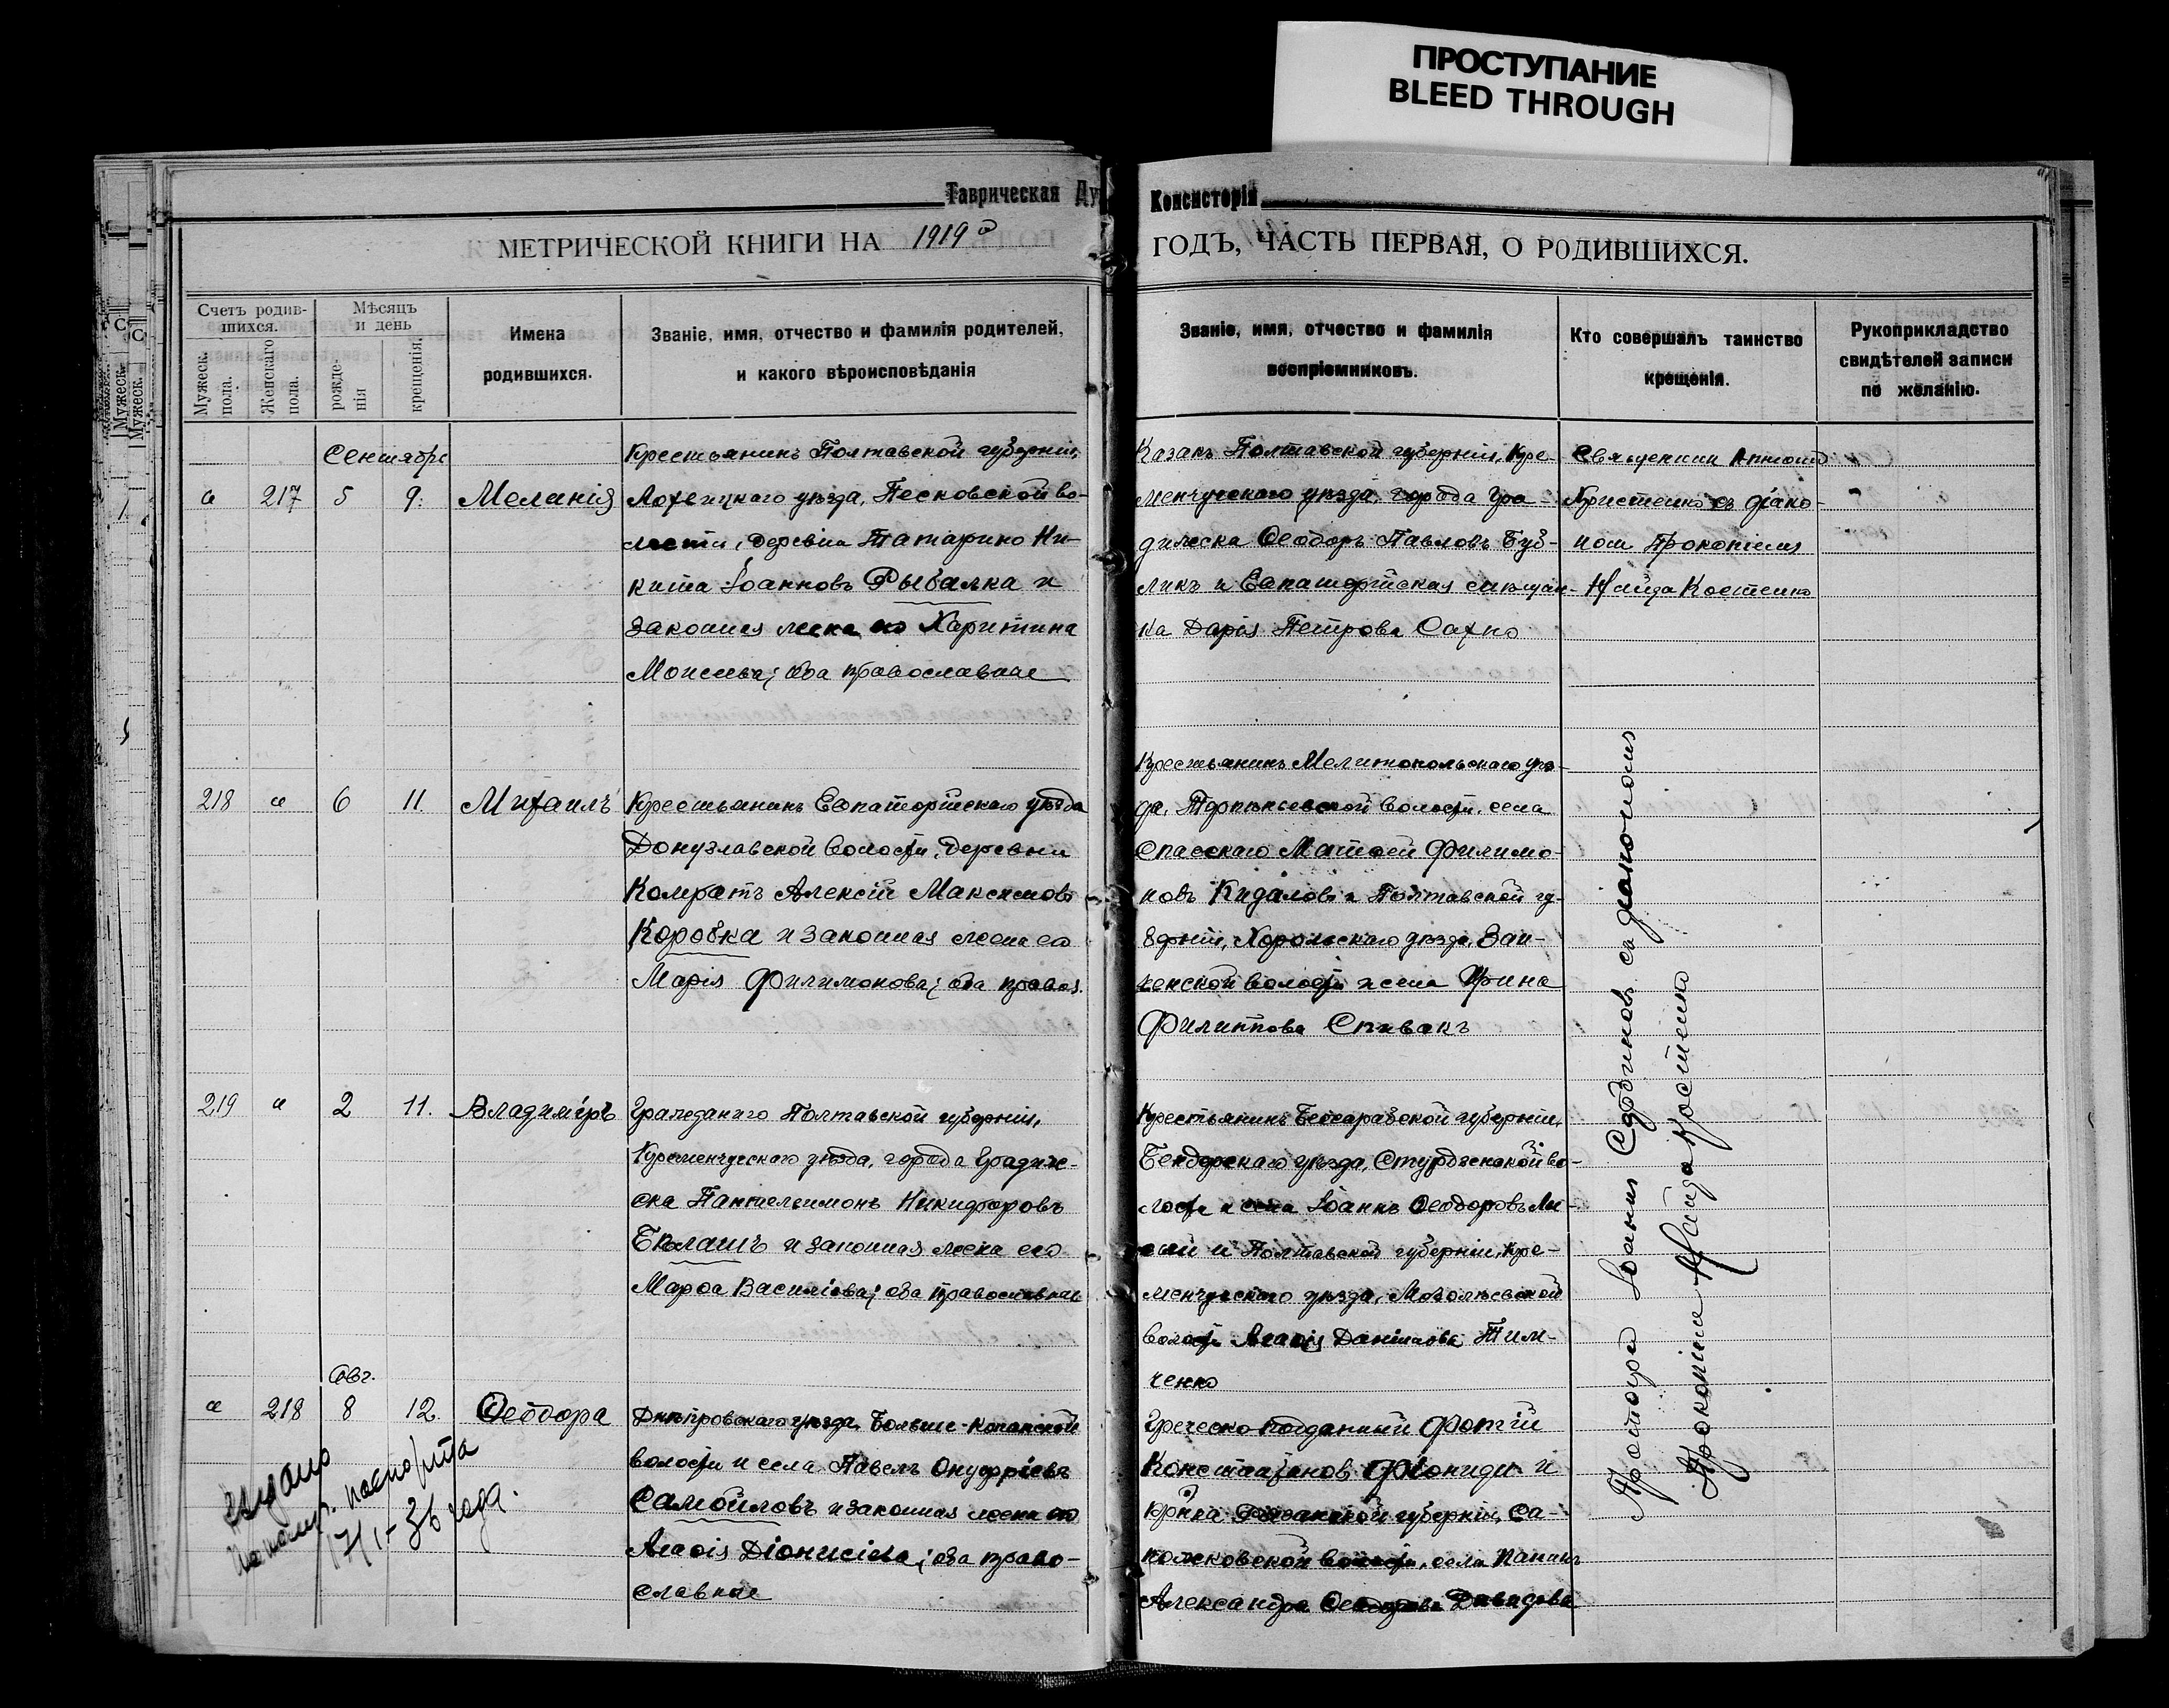 ПРОСТУПАНИЕ
BLEED THROUGH
Таврическая Ду
Консисторія
МЕТРИЧЕСКОЙ КНИГИ НА 1919й
ГОДЪ, ЧАСТЬ ПЕРВАЯ, О РОДИВШИХСЯ.
Счетъ родив-
шихся.
Мужеск.
пола.
Женскаго
пола.
Мѣсяцъ
и день
рожде-
нія
крещенія.
Имена
родившихся.
Званіе, имя, отчество и фамилія родителей,
и какого вѣроисповѣданія
Званіе, имя, отчество и фамилія
воспріемниковъ.
Кто совершалъ таинство
крещенія.
Рукоприкладство
свидѣтелей записи
по желанію.
Сентябрь
217 5 9. Меланія
Крестьянинъ Полтавской губерніи,
Лохвицкаго уѣзда, Песковской во-
лости, деревни Татарино Ни-
кита Іоанновъ Рыбалка и
законная жена его Харитина
Моисеева; оба православные
Казакъ Полтавской губерніи, Кре-
менчугскаго уѣзда, города Гра-
дижска Ѳеодоръ Павловъ Буб-
ликъ и Евпаторійская мѣщан-
ка Дарія Петрова Сахно
Священник Антоній
Христенко съ діако-
ном Прокопіемъ
Найда Костенко
218 6 11. Михаилъ
Крестьянинъ Евпаторійскаго уѣзда
Донузлавской волости, деревни
Комратъ Алексій Максимовъ
Коробка и законная жена его
Марія Филимонова; оба правос.
Крестьянинъ Мелитопольскаго уѣз-
да, Терпѣньевской волости, села
Спасскаго Матѳей Филимо-
новъ Кидаловъ и Полтавской гу-
берніи, Хорольскаго уѣзда, Заи-
ченской волости и села Ирина
Филиппова Спивакъ
219 2 11. Владиміръ
Гражданинъ Полтавской губерніи,
Кременчугскаго уѣзда, города Градиж-
ска Пантелеимонъ Никифоровъ
Бклашъ и законная жена его
Марѳа Василіева; оба православные
Крестьянинъ Бессарабской губерніи,
Бендерскаго уѣзда, во-
лости и села Іоаннъ Ѳеодоровъ Ли-
сій и Полтавской губерніи, Кре-
менчугскаго уѣзда,
волости Агаѳія Даніилова Тим-
ченко
Протоіерей Іоаннъ Сербиновъ съ діакономъ
Прокопіемъ Найда Костенко
Авг.
218 8 12. Ѳеодора
Днѣпровскаго уѣзда, Больше-Копанской
волости и села Павелъ Онуфріевъ
Самойловъ и законная жена его
Агаѳія Діонисіева; оба право-
славные
Греческо-подданный Фотій
Константинов Фіониди и
губерніи, Са-
пожковской волости, села
Александра Ѳеодорова Давидова
выдано
17/I-36 года.